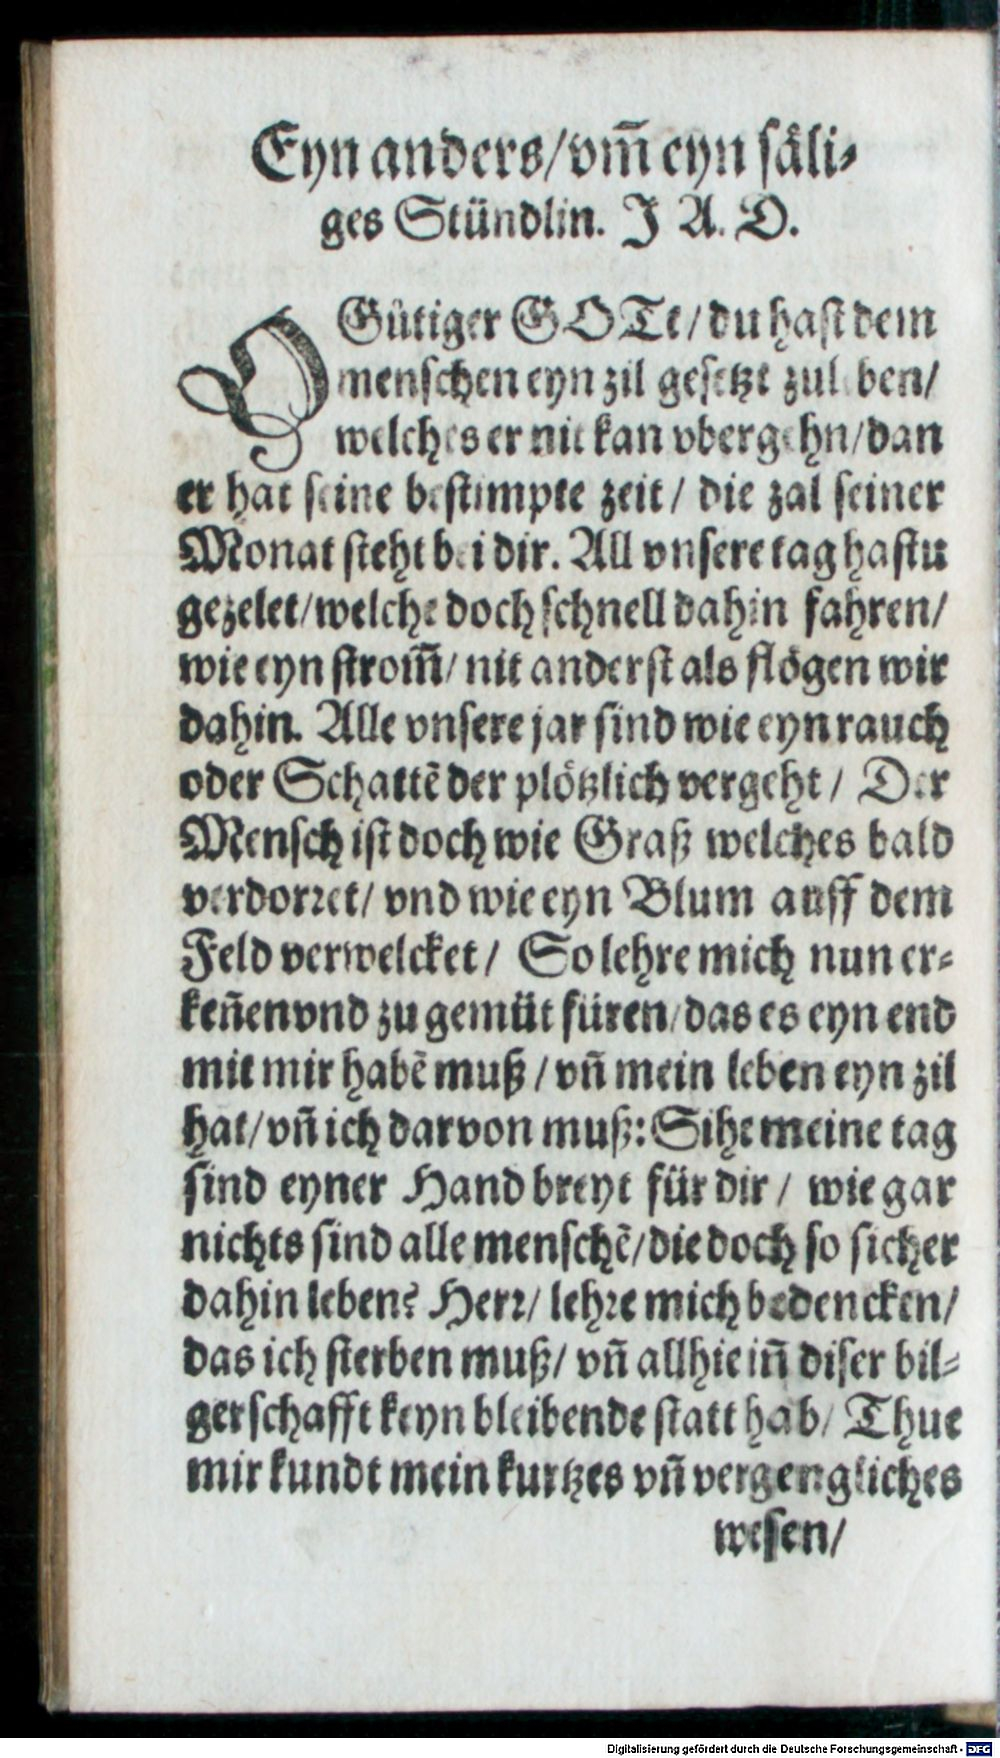 Eyn anders/vm̄ eyn säli⸗
ges Stündlin. J A. D.
O Gütiger GOTt/du hast dem
menschen eyn zil gesetzt zuleben/
welches er nit kan vbergehn/dan
er hat seine bestimpte zeit/ die zal seiner
Monat steht bei dir. All vnsere tag hastu
gezelet/welche doch schnell dahin fahren/
wie eyn strom̄/ nit anderst als flögen wir
dahin. Alle vnsere jar sind wie eyn rauch
oder Schattē der plötzlich vergeht/ Der
Mensch ist doch wie Graß welches bald
verdorret/ vnd wie eyn Blum auff dem
Feld verwelcket/ So lehre mich nun er⸗
keñen vnd zu gemüt füren/das es eyn end
mit mir habē muß/vñ mein leben eyn zil
hat/vñ ich darvon muß: Sihe meine tag
sind eyner Hand breyt für dir/ wie gar
nichts sind alle menschē/die doch so sicher
dahin leben? Herr/ lehre mich bedencken/
das ich sterben muß/ vñ allhie iñ diser bil⸗
gerschafft keyn bleibende statt hab/ Thue
mir kundt mein kurtzes vñ vergengliches
wesen/
Digitalisierung gefördert durch die Deutsche Forschungsgemeinschaft - DFG